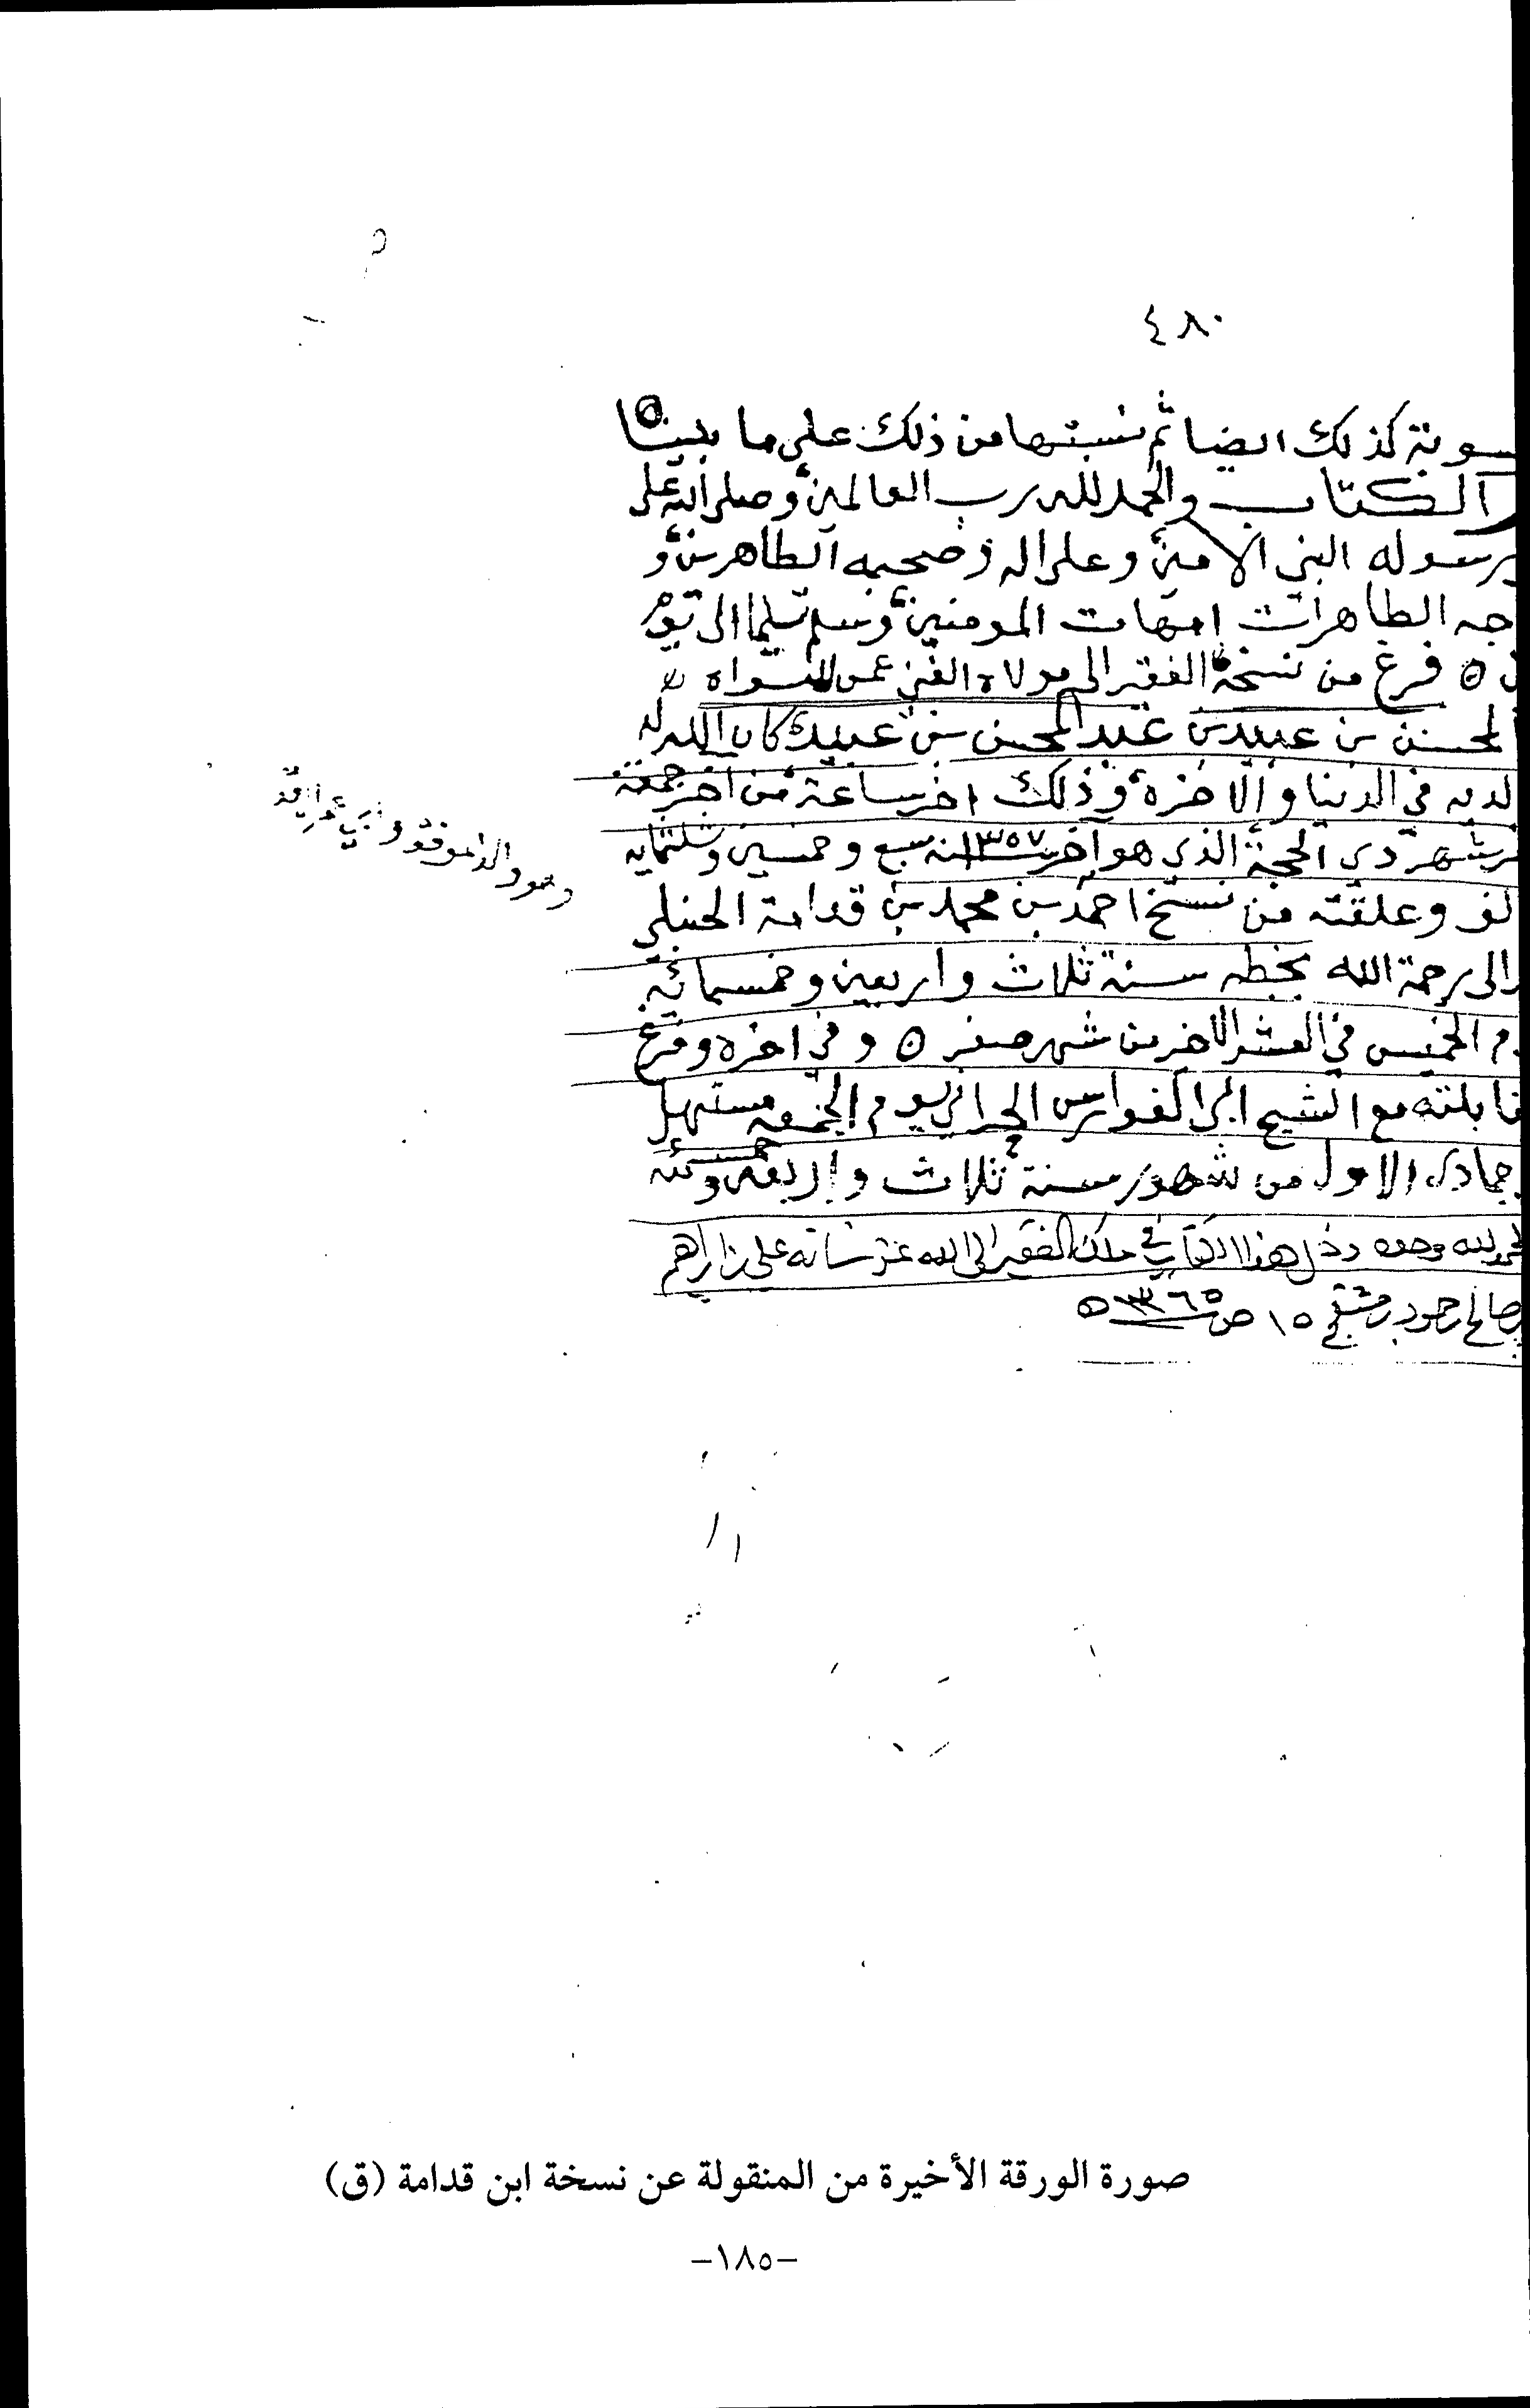 ٤٨٠
سوبة كذلك ايضا ثم نسبتها من ذلك على ما بينا ه
الكتاب والحمد لله رب العالمين وصلى الله على
رسوله النبي الامين وعلى اله وصحبه الطاهرين و
جه الطاهرات امهات المومنين وسلم تسليما الى يوم
ه فرغ من نسخه الفقير الى مولاه الغني عمن سواه
لحسن بن عبيد بن عبد المحسن بن عبيد كان الله له
لديه في الدنيا والاخرة وذلك اخر ساعة من اخر جمعة
شهر ذي الحجة الذي هو آخر سنة ١٣٥٧ سبع وخمسين وثلثمايه
لف وعلقته من نسخ احمد بن محمد بن قدامة الحنبلي
الى رحمة الله بخطه سنة ثلاث واربعين وخمسمائة
م الخميس في العشر الاخر من شهر صفر ه وفي اخره وفرغ
قابلته مع الشيخ ابي الفوارس الحراني يوم الجمعه مستهل
جمادى الاول من شهور سنة ثلاث واربعين وخمسمئه
لحمد لله وحده دخل هذا الكتاب في ملك الفقير الى الله عز شانه علي بن ابراهيم
صالح حمود بدمشق ١٥ ص ١٣٦٥ ه
وهو والد الموفق وابي عمر
صورة الورقة الأخيرة من المنقولة عن نسخة ابن قدامة (ق)
-١٨٥-